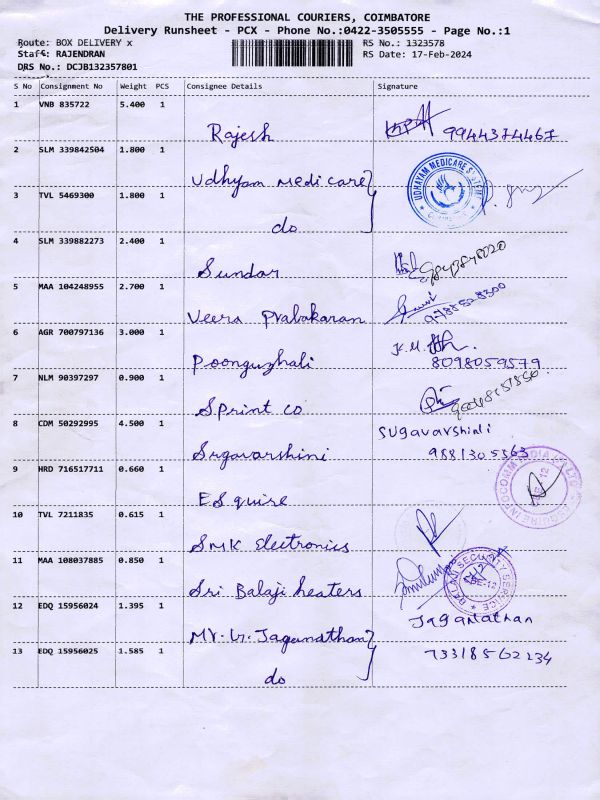 THE PROFESSIONAL COURIERS, COIMBATORE
Delivery Runsheet - PCX - Phone No.:0422-3505555 - Page No.:1
Route: BOX DELIVERY x RS No.: 1323578
Staff: RAJENDRAN RS Date: 17-Feb-2024
DRS No.: DCJB132357801
S No Consignment No Weight PCS Consignee Details Signature
1 VNB 835722 5.400 1
Rajesh 9944374467
2 SLM 339842504 1.800 1
Udhyam Medi care
UDHAYAM MEDICARE
3 TVL 5469300 1.800 1
do
4 SLM 339882273 2.400 1
Sundar
5 MAA 104248955 2.700 1
Veera Prabakaran
6 AGR 700797136 3.000 1
Poonguzhali K.M. 8098059579
7 NLM 90397297 0.900 1
Sprint co
8 CDM 50292995 4.500 1
sugavarshini
Srgavarshini 9881305563
9 HRD 716517711 0.660 1
ESquire
10 TVL 7211835 0.615 1
SMK Electronics
11 MAA 108037885 0.850 1
Sri Balaji heaters
12 EDQ 15956024 1.395 1
Jaganathan
Mr. G. Jaganathan
13 EDQ 15956025 1.585 1
73318562234
do